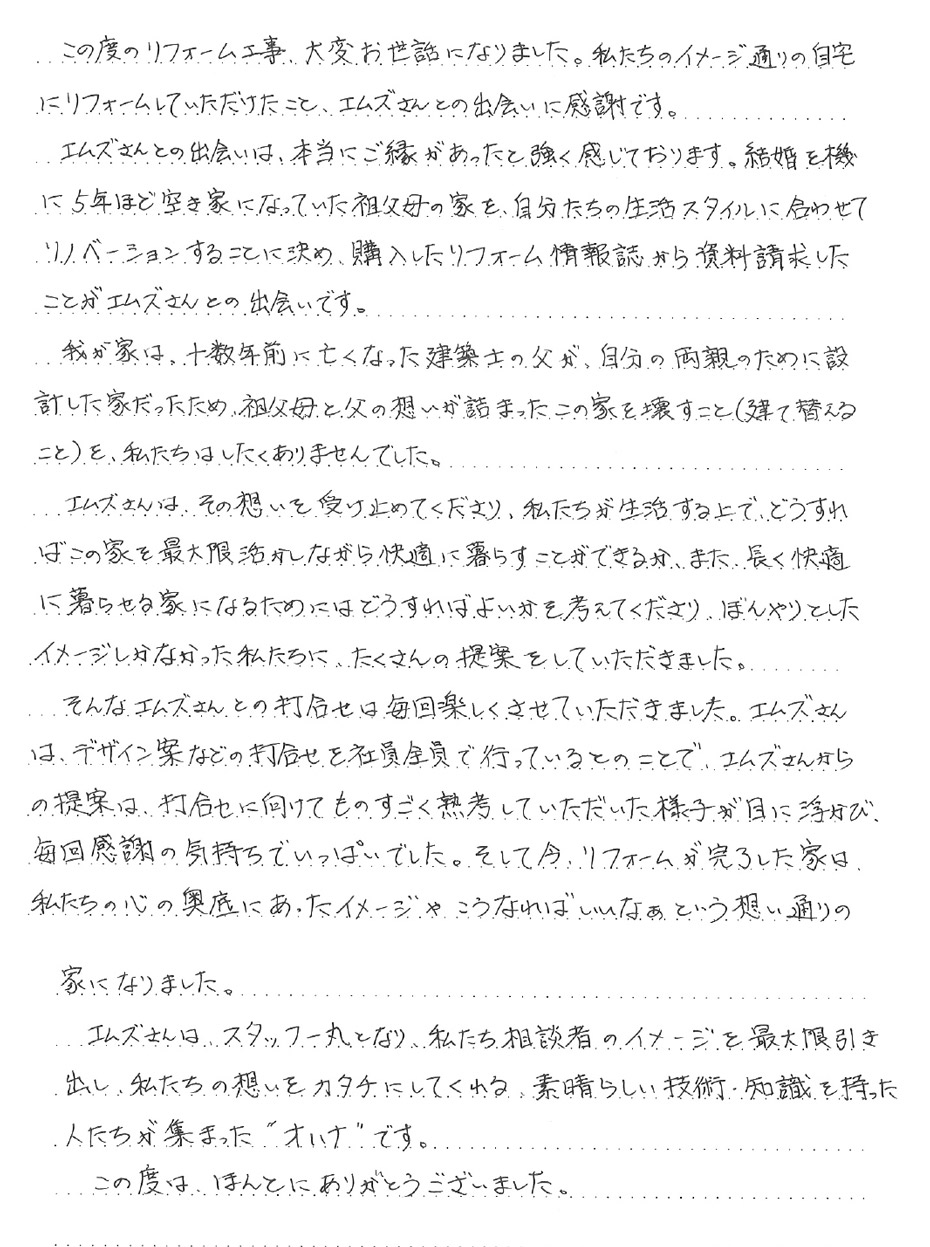 この度のリフォーム工事、大変お世話になりました。私たちのイメージ通りの自宅
にリフォームしていただけたこと、エムズさんとの出会いに感謝です。
エムズさんとの出会いは、本当にご縁があったと強く感じております。結婚を機
に5年ほど空き家になっていた祖父母の家を、自分たちの生活スタイルに合わせて
リノベーションすることに決め、購入したリフォーム情報誌から資料請求した
ことがエムズさんとの出会いです。
我が家は、十数年前に亡くなった建築士の父が、自分の両親のために設
計した家だったため、祖父母と父の想いが詰まったこの家を壊すこと(建て替える
こと)を、私たちはしたくありませんでした。
エムズさんは、その想いを受け止めてくださり、私たちが生活する上で、どうすれ
ばこの家を最大限活かしながら快適に暮らすことができるか、また、長く快適
に暮らせる家になるためにはどうすればよいかを考えてくださり、ぼんやりとした
イメージしかなかった私たちに、たくさんの提案をしていただきました。
そんなエムズさんとの打合せは毎回楽しくさせていただきました。エムズさん
は、デザイン案などの打合せを社員全員で行っているとのことで、エムズさんから
の提案は、打合せに向けてものすごく熟考していただいた様子が目に浮かび、
毎回感謝の気持ちでいっぱいでした。そして今、リフォームが完了した家は、
私たちの心の奥底にあったイメージや こうなればいいなぁという想い通りの
家になりました。
エムズさんは、スタッフ一丸となり、私たち相談者のイメージを最大限引き
出し、私たちの想いをカタチにしてくれる、素晴らしい技術・知識を持った
人たちが集まった"オいナ"です。
この度は、ほんとにありがとうございました。